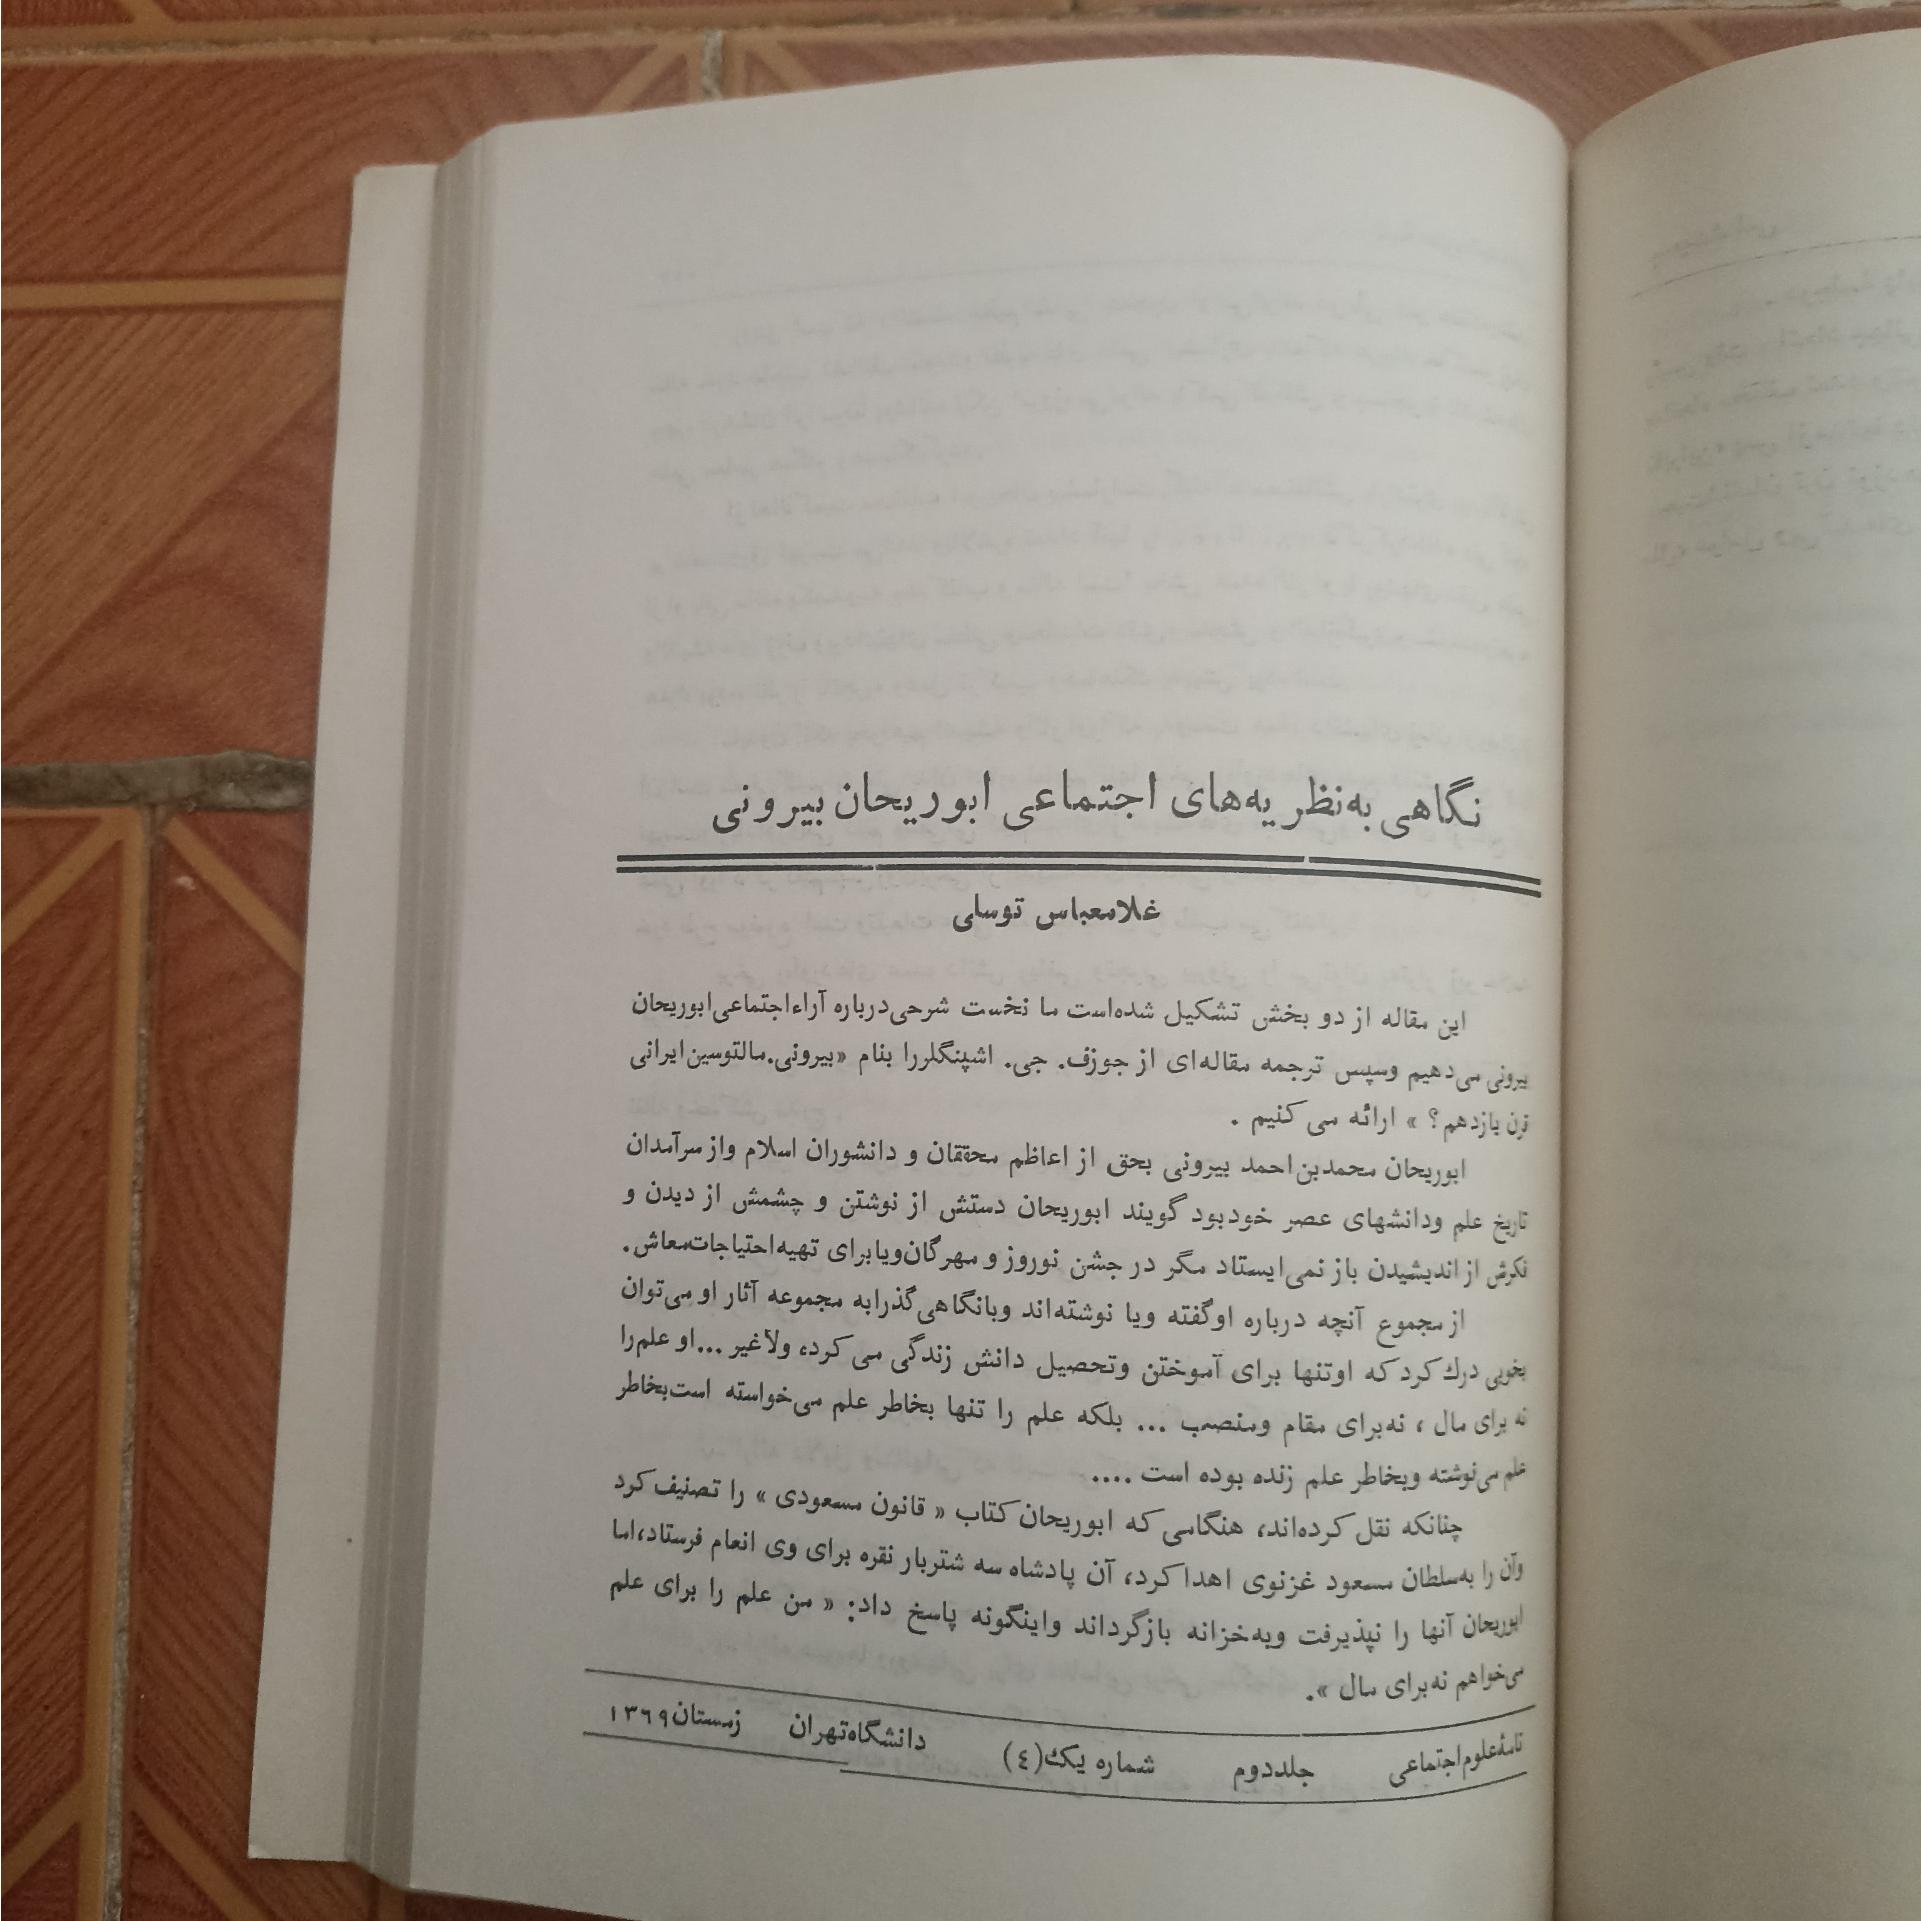 نگاهی به‌نظریه‌های اجتماعی ابوریحان بیرونی
غلامعباس توسلی
این مقاله از دو بخش تشکیل شده‌است ما نخست شرحی‌درباره آراءاجتماعی‌ابوریحان
بیرونی می‌دهیم وسپس ترجمه مقاله‌ای از جوزف. جی. اشپنگلررا بنام «بیرونی.مالتوسین‌ایرانی
قرن یازدهم؟ » ارائه می کنیم .
ابوریحان محمدبن‌احمد بیرونی بحق از اعاظم محققان و دانشوران اسلام واز سرآمدان
تاریخ علم ودانشهای عصر خودبود گویند ابوریحان دستش از نوشتن و چشمش از دیدن و
فکرش از اندیشیدن باز نمی‌ایستاد مگر در جشن نوروز و مهرگان‌ویابرای تهیه‌احتیاجات‌معاش.
از مجموع آنچه درباره اوگفته ویا نوشته‌اند وبانگاهی‌گذرابه مجموعه آثار او می‌توان
بخوبی درك کرد که اوتنها برای آموختن وتحصیل دانش زندگی می کرد، ولاغیر ...او علم‌را
نه برای مال ، نه‌برای مقام ومنصب ... بلکه علم را تنها بخاطر علم می‌خواسته است‌بخاطر
علم می‌نوشته وبخاطر علم زنده بوده است ....
چنانکه نقل کرده‌اند، هنگامی که ابوریحان کتاب « قانون مسعودی » را تصنیف کرد
وآن را به‌سلطان مسعود غزنوی اهدا کرد، آن پادشاه سه شتربار نقره برای وی انعام فرستاد،اما
ابوریحان آنها را نپذیرفت وبه‌خزانه بازگرداند واینگونه پاسخ داد: « من علم را برای علم
می‌خواهم نه‌برای مال ».
نامهٔ علوم‌اجتماعی جلددوم شماره یک(٤) دانشگاه‌تهران زمستان۱۳٦۹